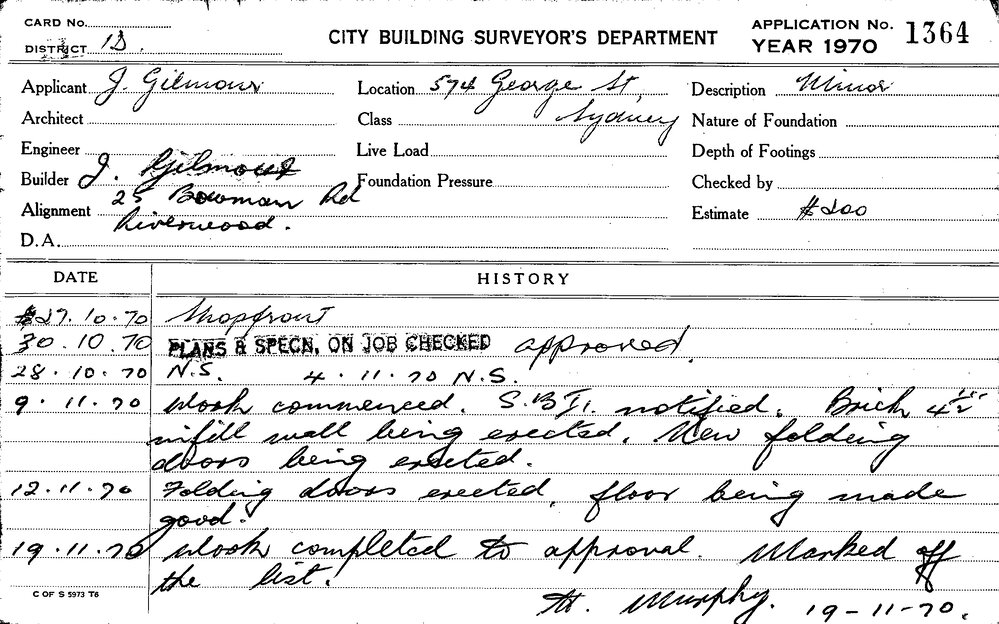 CARD No.
DISTRICT 1D.
CITY BUILDING SURVEYOR'S DEPARTMENT
APPLICATION No. 1364
YEAR 1970
Applicant J. Gilmour
Location 574 George St,
Sydney
Description Minor
Architect
Class
Nature of Foundation
Engineer
Live Load
Depth of Footings
Builder J. Gilmour
25 Bowman Rd
Riverwood.
Foundation Pressure
Checked by
Alignment
Estimate $200
D.A.
DATE HISTORY
27.10.70 Shopfront
30.10.70 PLANS & SPECN. ON JOB CHECKED approved.
28.10.70 N.S. 4.11.70 N.S.
9.11.70 Work commenced. notified. Brick 4½"
infill wall being erected. New folding
doors being erected.
12.11.70 Folding doors erected, floor being made
good.
19.11.70 Work completed to approval. Marked off
the list.
Murphy. 19-11-70.
C OF S 5973 T6